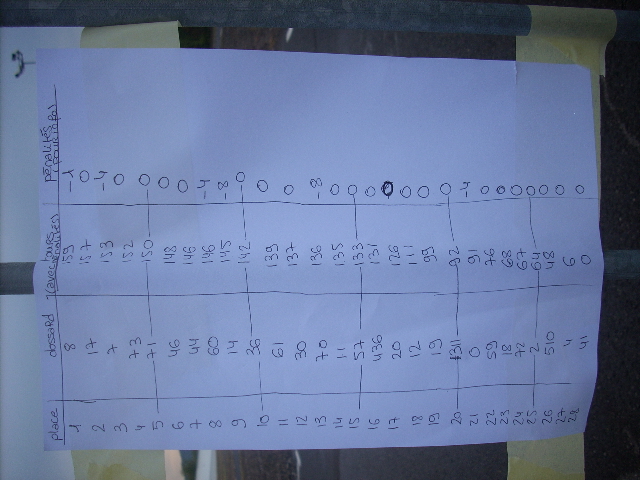 place dossard tours (avec pénalités) pénalités (tours en -)
1 8 159 -1
2 17 157 0
3 7 153 -4
4 73 152 0
5 71 150 0
6 46 148 0
7 44 146 0
8 60 146 -4
9 14 145 -8
10 36 142 0
11 61 139 0
12 30 137 0
13 70 136 -8
14 11 135 0
15 57 133 0
16 436 131 0
17 20 126 0
18 12 111 0
19 19 99 0
20 1311 92 0
21 0 91 -4
22 59 76 0
23 18 68 0
24 72 67 0
25 2 64 0
26 510 48 0
27 4 6 0
28 41 0 0